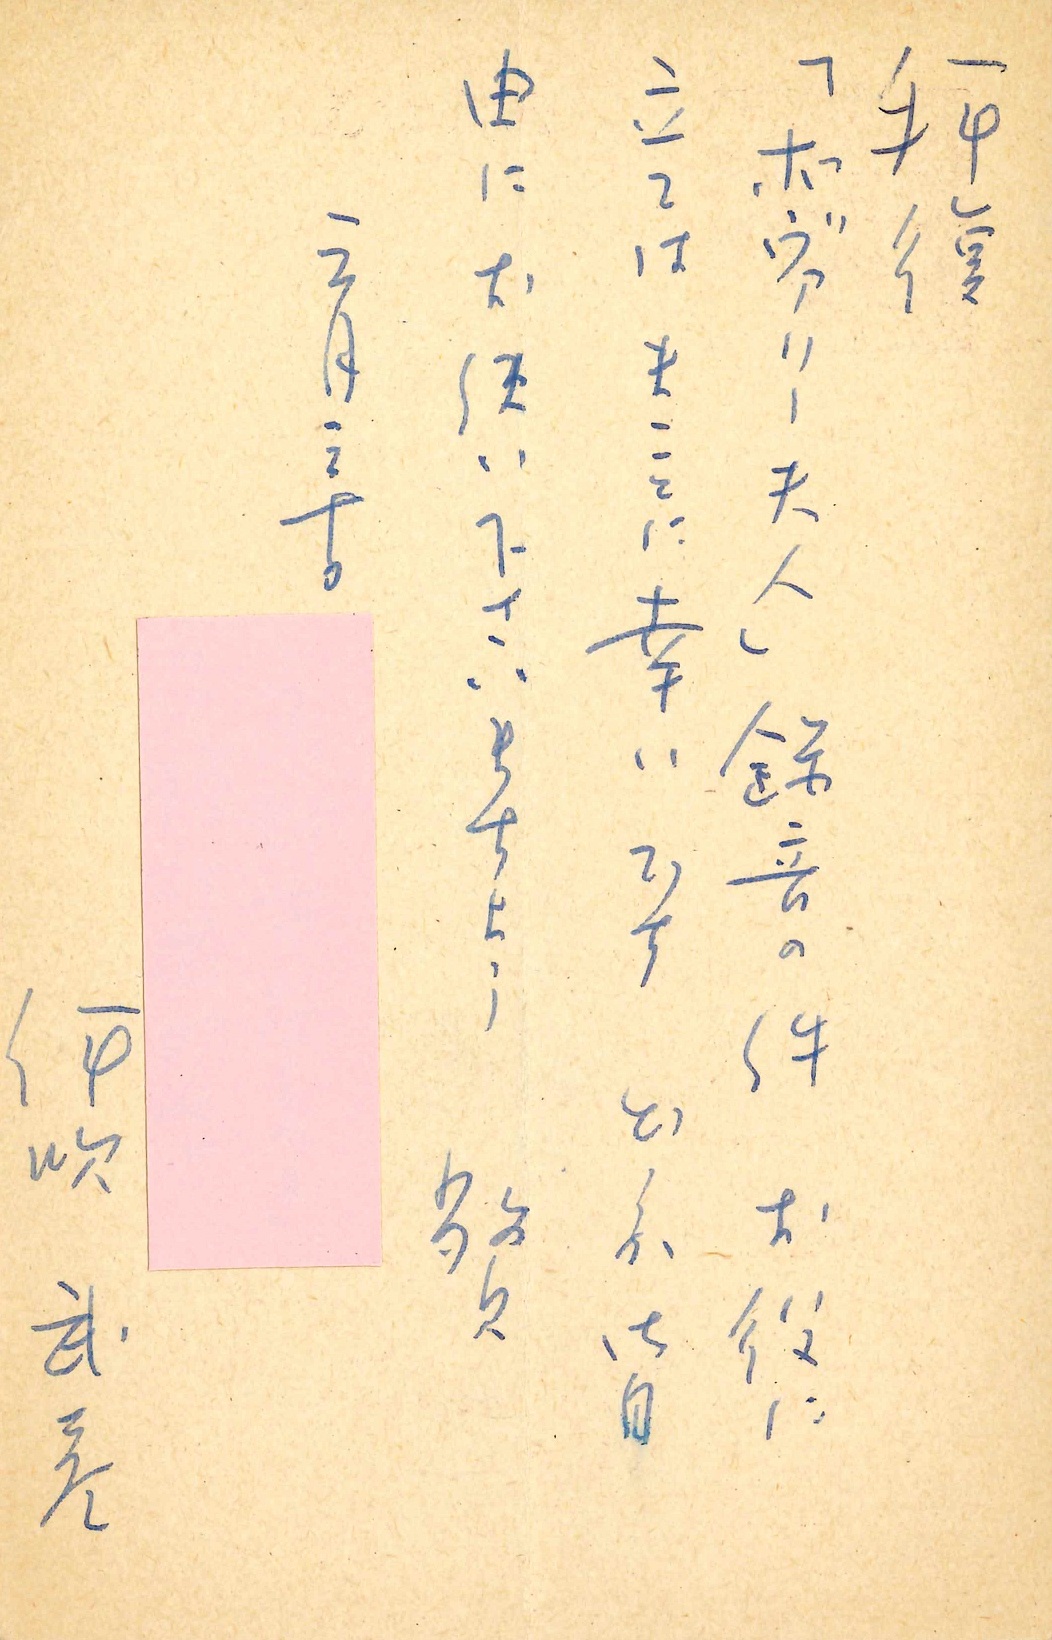 拝復
「ボヴァリー夫人」録音の件 お役に
立てば まことに幸いです どうか御自
由にお使い下さいますよう 敬具
二月二十日
伊吹 武彦